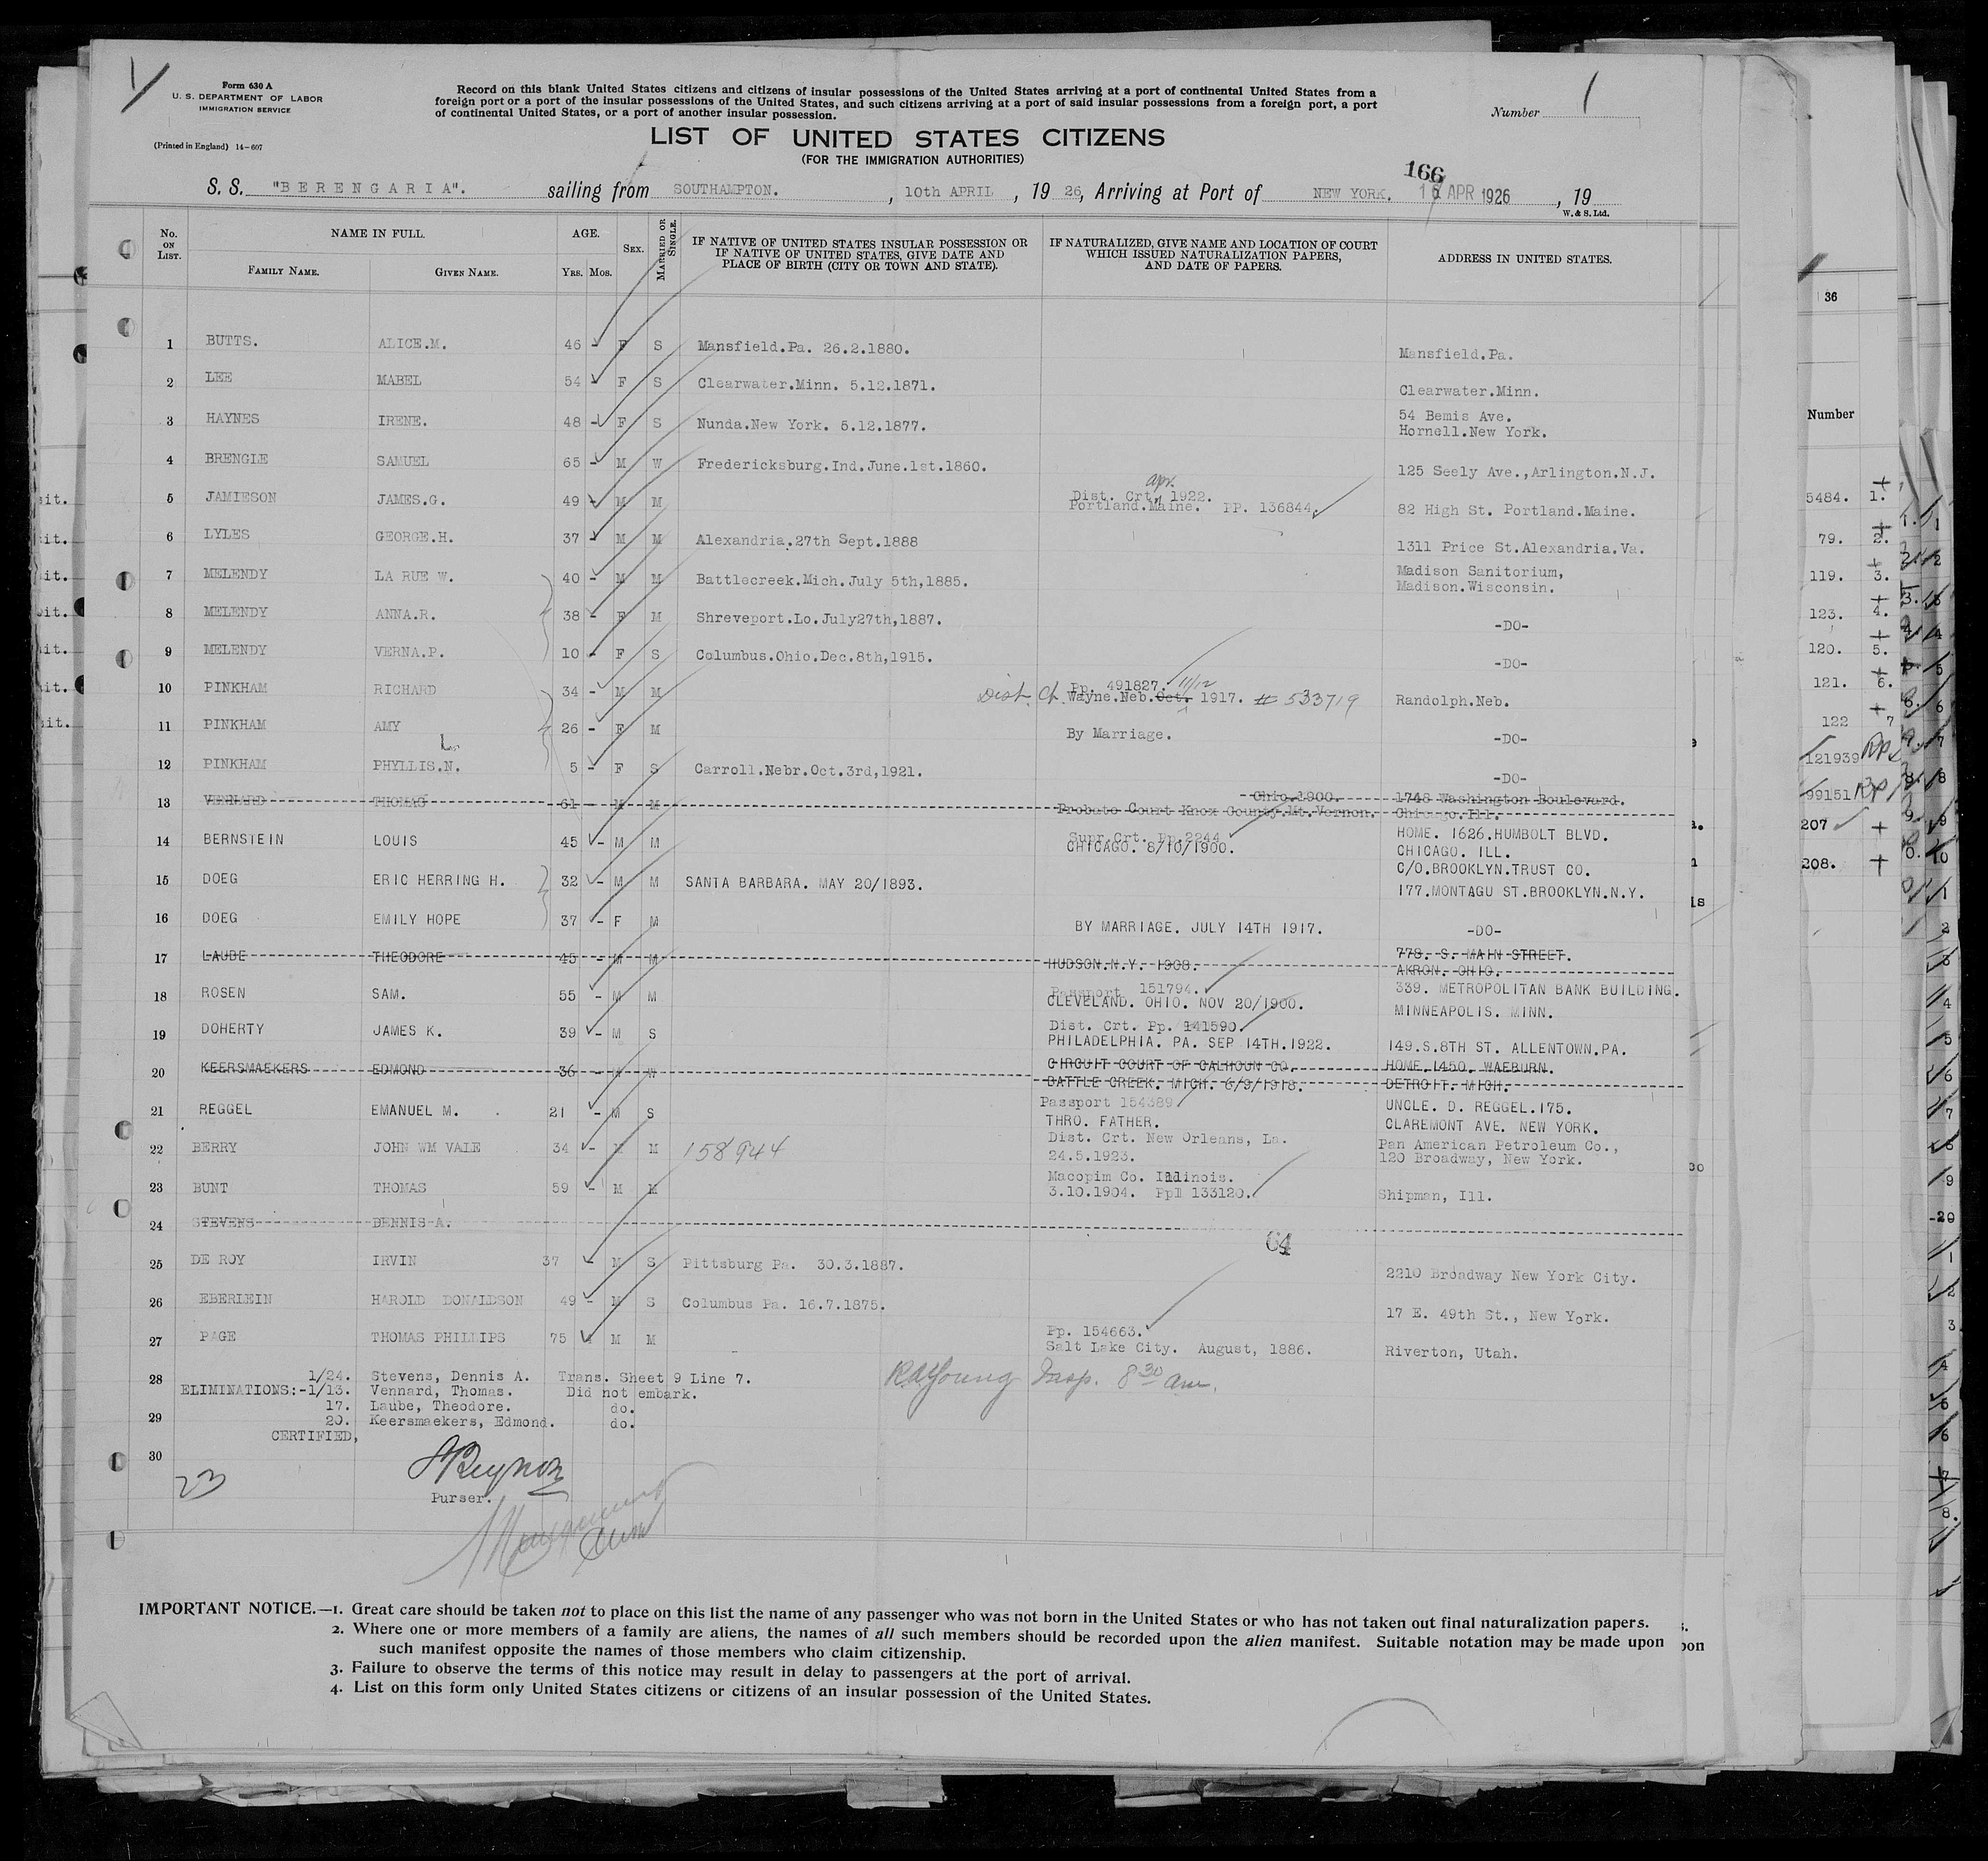 Form 630 A
U. S. DEPARTMENT OF LABOR
IMMIGRATION SERVICE
(Printed in England) 14-607
Record on this blank United States citizens and citizens of insular possessions of the United States arriving at a port of continental United States from a
foreign port or a port of the insular possessions of the United States, and such citizens arriving at a port of said insular possessions from a foreign port, a port
of continental United States, or a port of another insular possession.
Number 1
LIST OF UNITED STATES CITIZENS
(FOR THE IMMIGRATION AUTHORITIES)
166
S. S. "BERENGARIA". sailing from SOUTHAMPTON. , 10th APRIL , 19 26, Arriving at Port of NEW YORK. 16 APR 1926 , 19
W. & S. Ltd.
No. ON LIST. NAME IN FULL. FAMILY NAME. GIVEN NAME. AGE. Yrs. Mos. SEX. MARRIED OR SINGLE. IF NATIVE OF UNITED STATES INSULAR POSSESSION OR IF NATIVE OF UNITED STATES, GIVE DATE AND PLACE OF BIRTH (CITY OR TOWN AND STATE). IF NATURALIZED, GIVE NAME AND LOCATION OF COURT WHICH ISSUED NATURALIZATION PAPERS, AND DATE OF PAPERS. ADDRESS IN UNITED STATES.
1 BUTTS. ALICE.M. 46 - F S Mansfield.Pa. 26.2.1880. Mansfield.Pa.
2 LEE MABEL 54 - F S Clearwater.Minn. 5.12.1871. Clearwater.Minn.
3 HAYNES IRENE. 48 - F S Nunda.New York. 5.12.1877. 54 Bemis Ave. Hornell.New York.
4 BRENGLE SAMUEL 65 - M W Fredericksburg.Ind.June.1st.1860. 125 Seely Ave.,Arlington.N.J.
5 JAMIESON JAMES.G. 49 - M M Dist. Crt. apr. 1922. Portland.Maine. PP. 136844. 82 High St. Portland.Maine.
6 LYLES GEORGE.H. 37 - M M Alexandria.27th Sept.1888 1311 Price St.Alexandria.Va.
7 MELENDY LA RUE W. 40 - M M Battlecreek.Mich.July 5th,1885. Madison Sanitorium, Madison.Wisconsin.
8 MELENDY ANNA.R. 38 - F M Shreveport.Lo.July27th,1887. -DO-
9 MELENDY VERNA.P. 10 - F S Columbus.Ohio.Dec.8th,1915. -DO-
10 PINKHAM RICHARD 34 - M M Pp. 491827. 11/12 Dist. Ct. Wayne.Neb.Oct. 1917. # 533719 Randolph.Neb.
11 PINKHAM AMY 26 - F M By Marriage. -DO-
12 PINKHAM PHYLLIS.N. 5 - F S Carroll.Nebr.Oct.3rd,1921. -DO-
13 VENNARD THOMAS 61 - M M Ohio.1900. Probate Court Knox County.Mt.Vernon. 1748 Washington Boulevard. Chicago.Ill.
14 BERNSTEIN LOUIS 45 - M M Supr.Crt. Pp.2244 CHICAGO. 8/10/1900. HOME. 1626.HUMBOLT BLVD. CHICAGO. ILL.
15 DOEG ERIC HERRING H. 32 - M M SANTA BARBARA. MAY 20/1893. C/O.BROOKLYN.TRUST CO. 177.MONTAGU ST.BROOKLYN.N.Y.
16 DOEG EMILY HOPE 37 - F M BY MARRIAGE. JULY 14TH 1917. -DO-
17 LAUBE THEODORE 45 - M M HUDSON.N.Y. 1908. 778. S. MAIN STREET. AKRON. OHIO.
18 ROSEN SAM. 55 - M M Passport 151794. CLEVELAND. OHIO. NOV 20/1900. 339. METROPOLITAN BANK BUILDING. MINNEAPOLIS. MINN.
19 DOHERTY JAMES K. 39 - M S Dist. Crt. Pp. 141590. PHILADELPHIA. PA. SEP 14TH.1922. 149.S.8TH ST. ALLENTOWN.PA.
20 KEERSMAEKERS EDMOND 36 - M W CIRCUIT COURT OF CALHOUN CO. BATTLE CREEK. MICH. 6/9/1918. HOME.1450. WAEBURN. DETROIT. MICH.
21 REGGEL EMANUEL M. 21 - M S Passport 154389 THRO. FATHER. UNCLE. D. REGGEL.175. CLAREMONT AVE. NEW YORK.
22 BERRY JOHN WM VALE 34 - M M 158944 Dist. Crt. New Orleans, La. 24.5.1923. Pan American Petroleum Co., 120 Broadway, New York.
23 BUNT THOMAS 59 - M M Macopim Co. Illinois. 3.10.1904. Pp 133120. Shipman, Ill.
24 STEVENS DENNIS A.
64
25 DE ROY IRVIN 37 - M S Pittsburg Pa. 30.3.1887. 2210 Broadway New York City.
26 EBERLEIN HAROLD DONALDSON 49 - M S Columbus Pa. 16.7.1875. 17 E. 49th St., New York.
27 PAGE THOMAS PHILLIPS 75 M M Pp. 154663. Salt Lake City. August, 1886. Riverton, Utah.
28 1/24. Stevens, Dennis A. Trans. Sheet 9 Line 7.
ELIMINATIONS:-1/13. Vennard, Thomas. Did not embark.
17. Laube, Theodore. do.
29 20. Keersmaekers, Edmond. do.
RAYoung Insp. 8 30 am.
CERTIFIED,
30
23
Purser.
IMPORTANT NOTICE.—1. Great care should be taken not to place on this list the name of any passenger who was not born in the United States or who has not taken out final naturalization papers.
2. Where one or more members of a family are aliens, the names of all such members should be recorded upon the alien manifest. Suitable notation may be made upon
such manifest opposite the names of those members who claim citizenship.
3. Failure to observe the terms of this notice may result in delay to passengers at the port of arrival.
4. List on this form only United States citizens or citizens of an insular possession of the United States.
36
Number
5484. 1.
79. 2.
119. 3.
123. 4.
120. 5.
121. 6.
122 7
121939
99151
207
208.